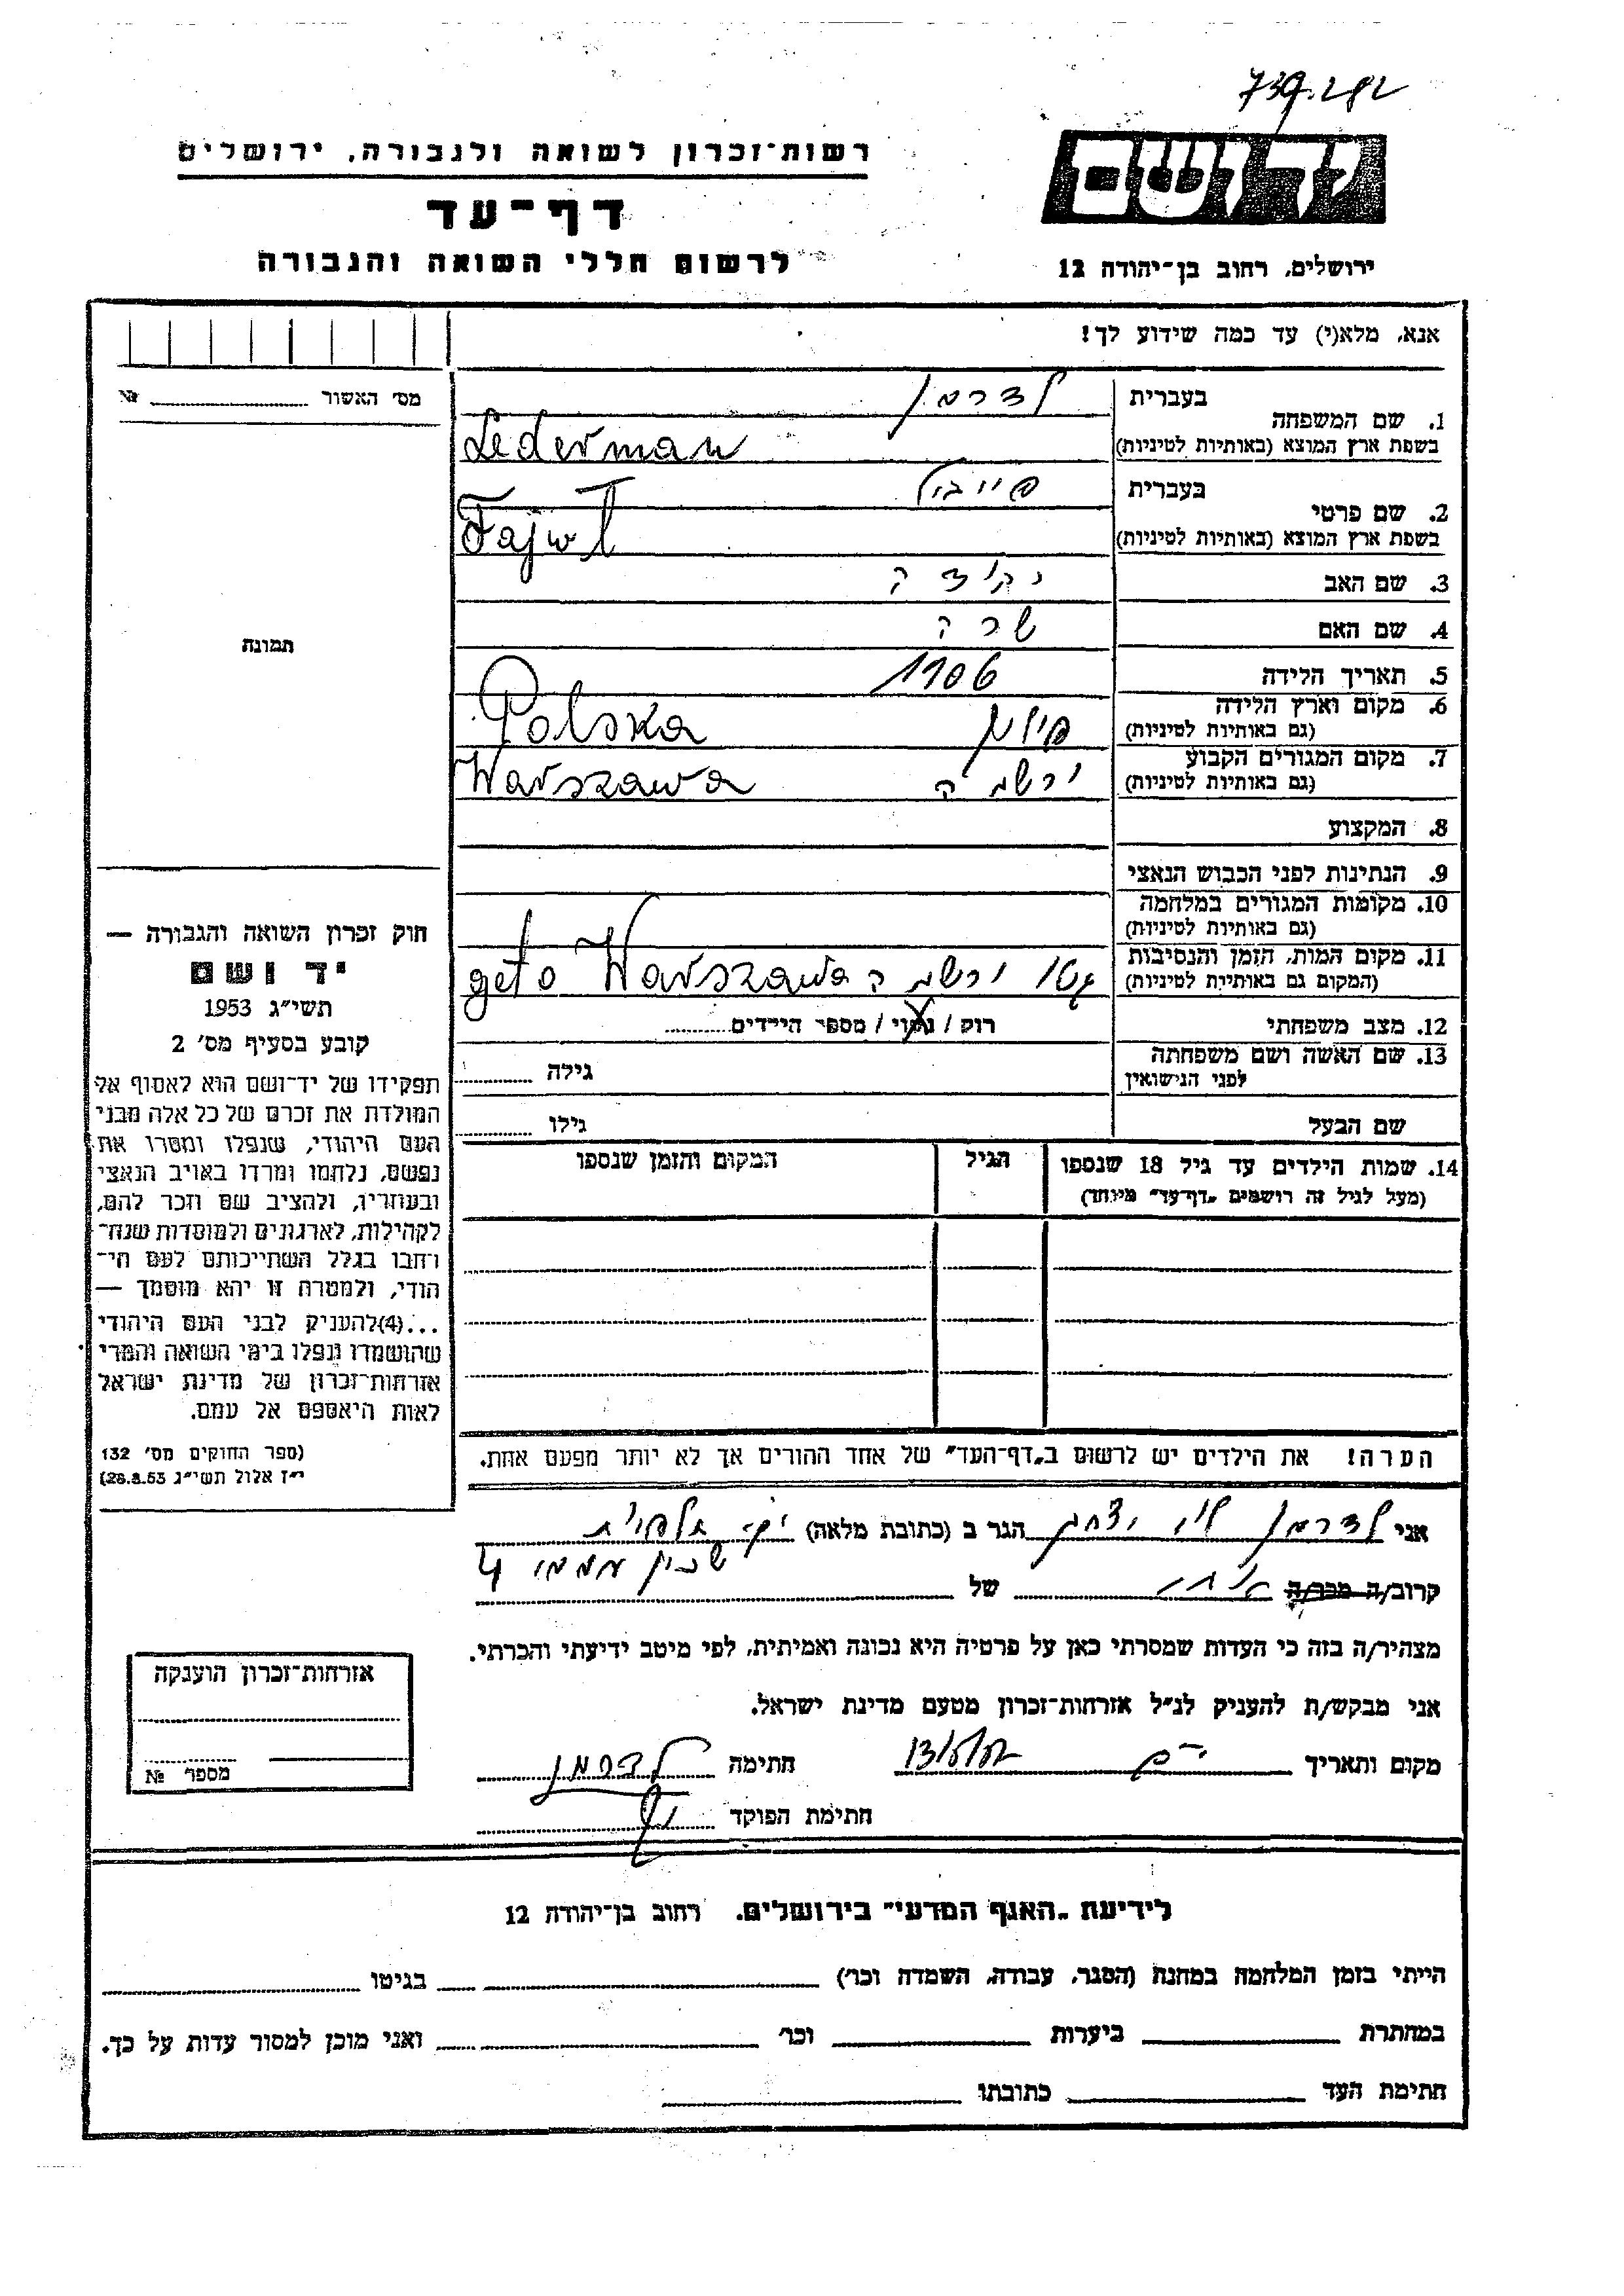 739.282
רשות־זכרון לשואה ולגבורה, ירושלים
יד ושם
דף־עד
לרשום חללי השואה והגבורה
ירושלים, רחוב בן־יהודה 12
אנא, מלא(י) עד כמה שידוע לך!
מס׳ האשור № 
בעברית לדרמן
1. שם המשפחה
בשפת ארץ המוצא (באותיות לטיניות) Lederman
בעברית פייבל
2. שם פרטי
בשפת ארץ המוצא (באותיות לטיניות) Fajwl
3. שם האב
4. שם האם שרה
5. תאריך הלידה 1906
6. מקום וארץ הלידה פולין Polska
(גם באותיות לטיניות)
7. מקום המגורים הקבוע ורשה Warszawa
(גם באותיות לטיניות)
8. המקצוע
9. הנתינות לפני הכבוש הנאצי
10. מקומות המגורים במלחמה
(גם באותיות לטיניות)
11. מקום המות, הזמן והנסיבות גטו ורשה geto Warszawa
(המקום גם באותיות לטיניות)
12. מצב משפחתי רוק / נשוי / מספר הילדים
13. שם האשה ושם משפחתה גילה
לפני הנישואין
שם הבעל גילו
14. שמות הילדים עד גיל 18 שנספו הגיל המקום והזמן שנספו
(מעל לגיל זה רושמים „דף־עד״ מיוחד)
הערה! את הילדים יש לרשום ב„דף־העד״ של אחד ההורים אך לא יותר מפעם אחת.
תמונה
חוק זכרון השואה והגבורה —
יד ושם
תשי״ג 1953
קובע בסעיף מס׳ 2
תפקידו של יד־ושם הוא לאסוף אל
המולדת את זכרם של כל אלה מבני
העם היהודי, שנפלו ומסרו את
נפשם, נלחמו ומרדו באויב הנאצי
ובעוזריו, ולהציב שם וזכר להם,
לקהילות, לארגונים ולמוסדות שנח־
רבו בגלל השתייכותם לעם הי־
הודי, ולמטרה זו יהא מוסמך —
...(4)להעניק לבני העם היהודי
שהושמדו ונפלו בימי השואה והמרי
אזרחות־זכרון של מדינת ישראל
לאות היאספם אל עמם.
(ספר החוקים מס׳ 132
י״ז אלול תשי״ג 28.8.53)
אני לדרמן יצחק הגר ב (כתובת מלאה)
4
קרוב/ה מכר/ה של
מצהיר/ה בזה כי העדות שמסרתי כאן על פרטיה היא נכונה ואמיתית, לפי מיטב ידיעתי והכרתי.
אני מבקש/ת להעניק לנ״ל אזרחות־זכרון מטעם מדינת ישראל.
מקום ותאריך חתימה לדרמן
חתימת הפוקד
אזרחות־זכרון הוענקה
מספר №
לידיעת „האגף המדעי״ בירושלים, רחוב בן־יהודה 12
הייתי בזמן המלחמה במחנה (הסגר, עבודה, השמדה וכו׳) בגיטו
במחתרת ביערות וכו׳ ואני מוכן למסור עדות על כך.
חתימת העד כתובתו